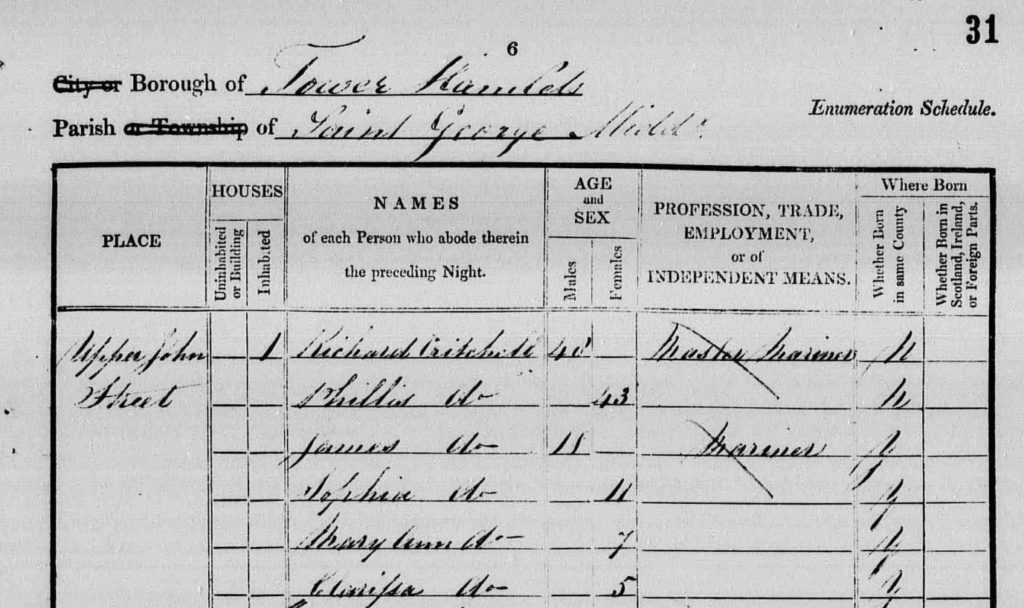 31
6
City or Borough of Tower Hamlets
Enumeration Schedule.
Parish or Township of Saint George Middx
PLACE
HOUSES
Uninhabited or Building
Inhabited
NAMES
of each Person who abode therein
the preceding Night.
AGE
and
SEX
Males
Females
PROFESSION, TRADE,
EMPLOYMENT,
or of
INDEPENDENT MEANS.
Where Born
Whether Born
in same County
Whether Born in
Scotland, Ireland,
or Foreign Parts.
Upper John 1 Richard Critchell 40 Master Mariner N
Street Phillis do 43 N
James do Mariner y
Sophia do 11 y
Mary Ann do 7 y
Clarissa do 5 y